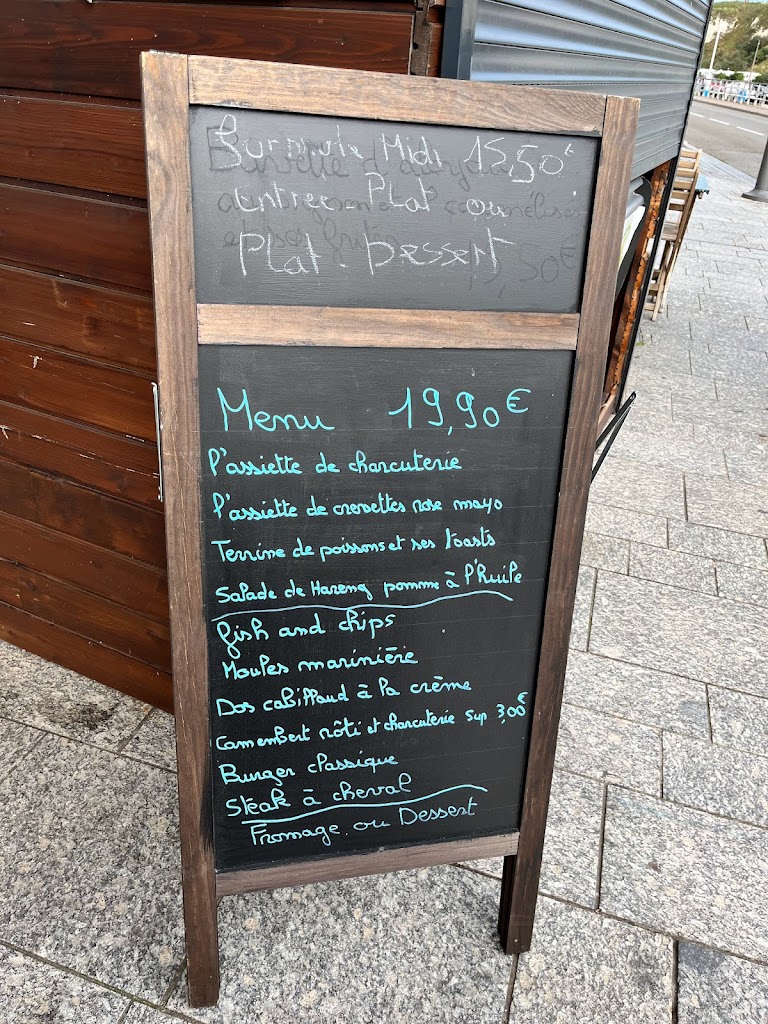 Formule Midi 15,50€
Entrée Plat ou
Plat. Dessert
Menu 19,90€
l'assiette de charcuterie
l'assiette de crevettes rose mayo
Terrine de poissons et ses toasts
Salade de Hareng pomme à l'huile
fish and chips
Moules marinière
Dos cabillaud à la crème
Camembert rôti et charcuterie sup 3,00€
Burger classique
Steak à cheval
Fromage ou Dessert